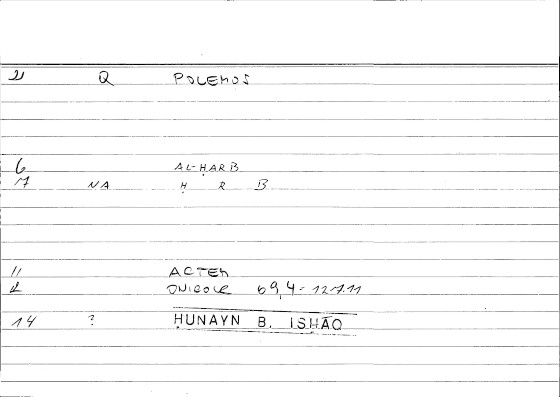 21 Q POLEMOS
6 AL-ḤARB
17 NA Ḥ R B
11 ACTEM
2 ONIROCR 69,4-12.7.11
14 ? ḤUNAYN B. ISḤĀQ